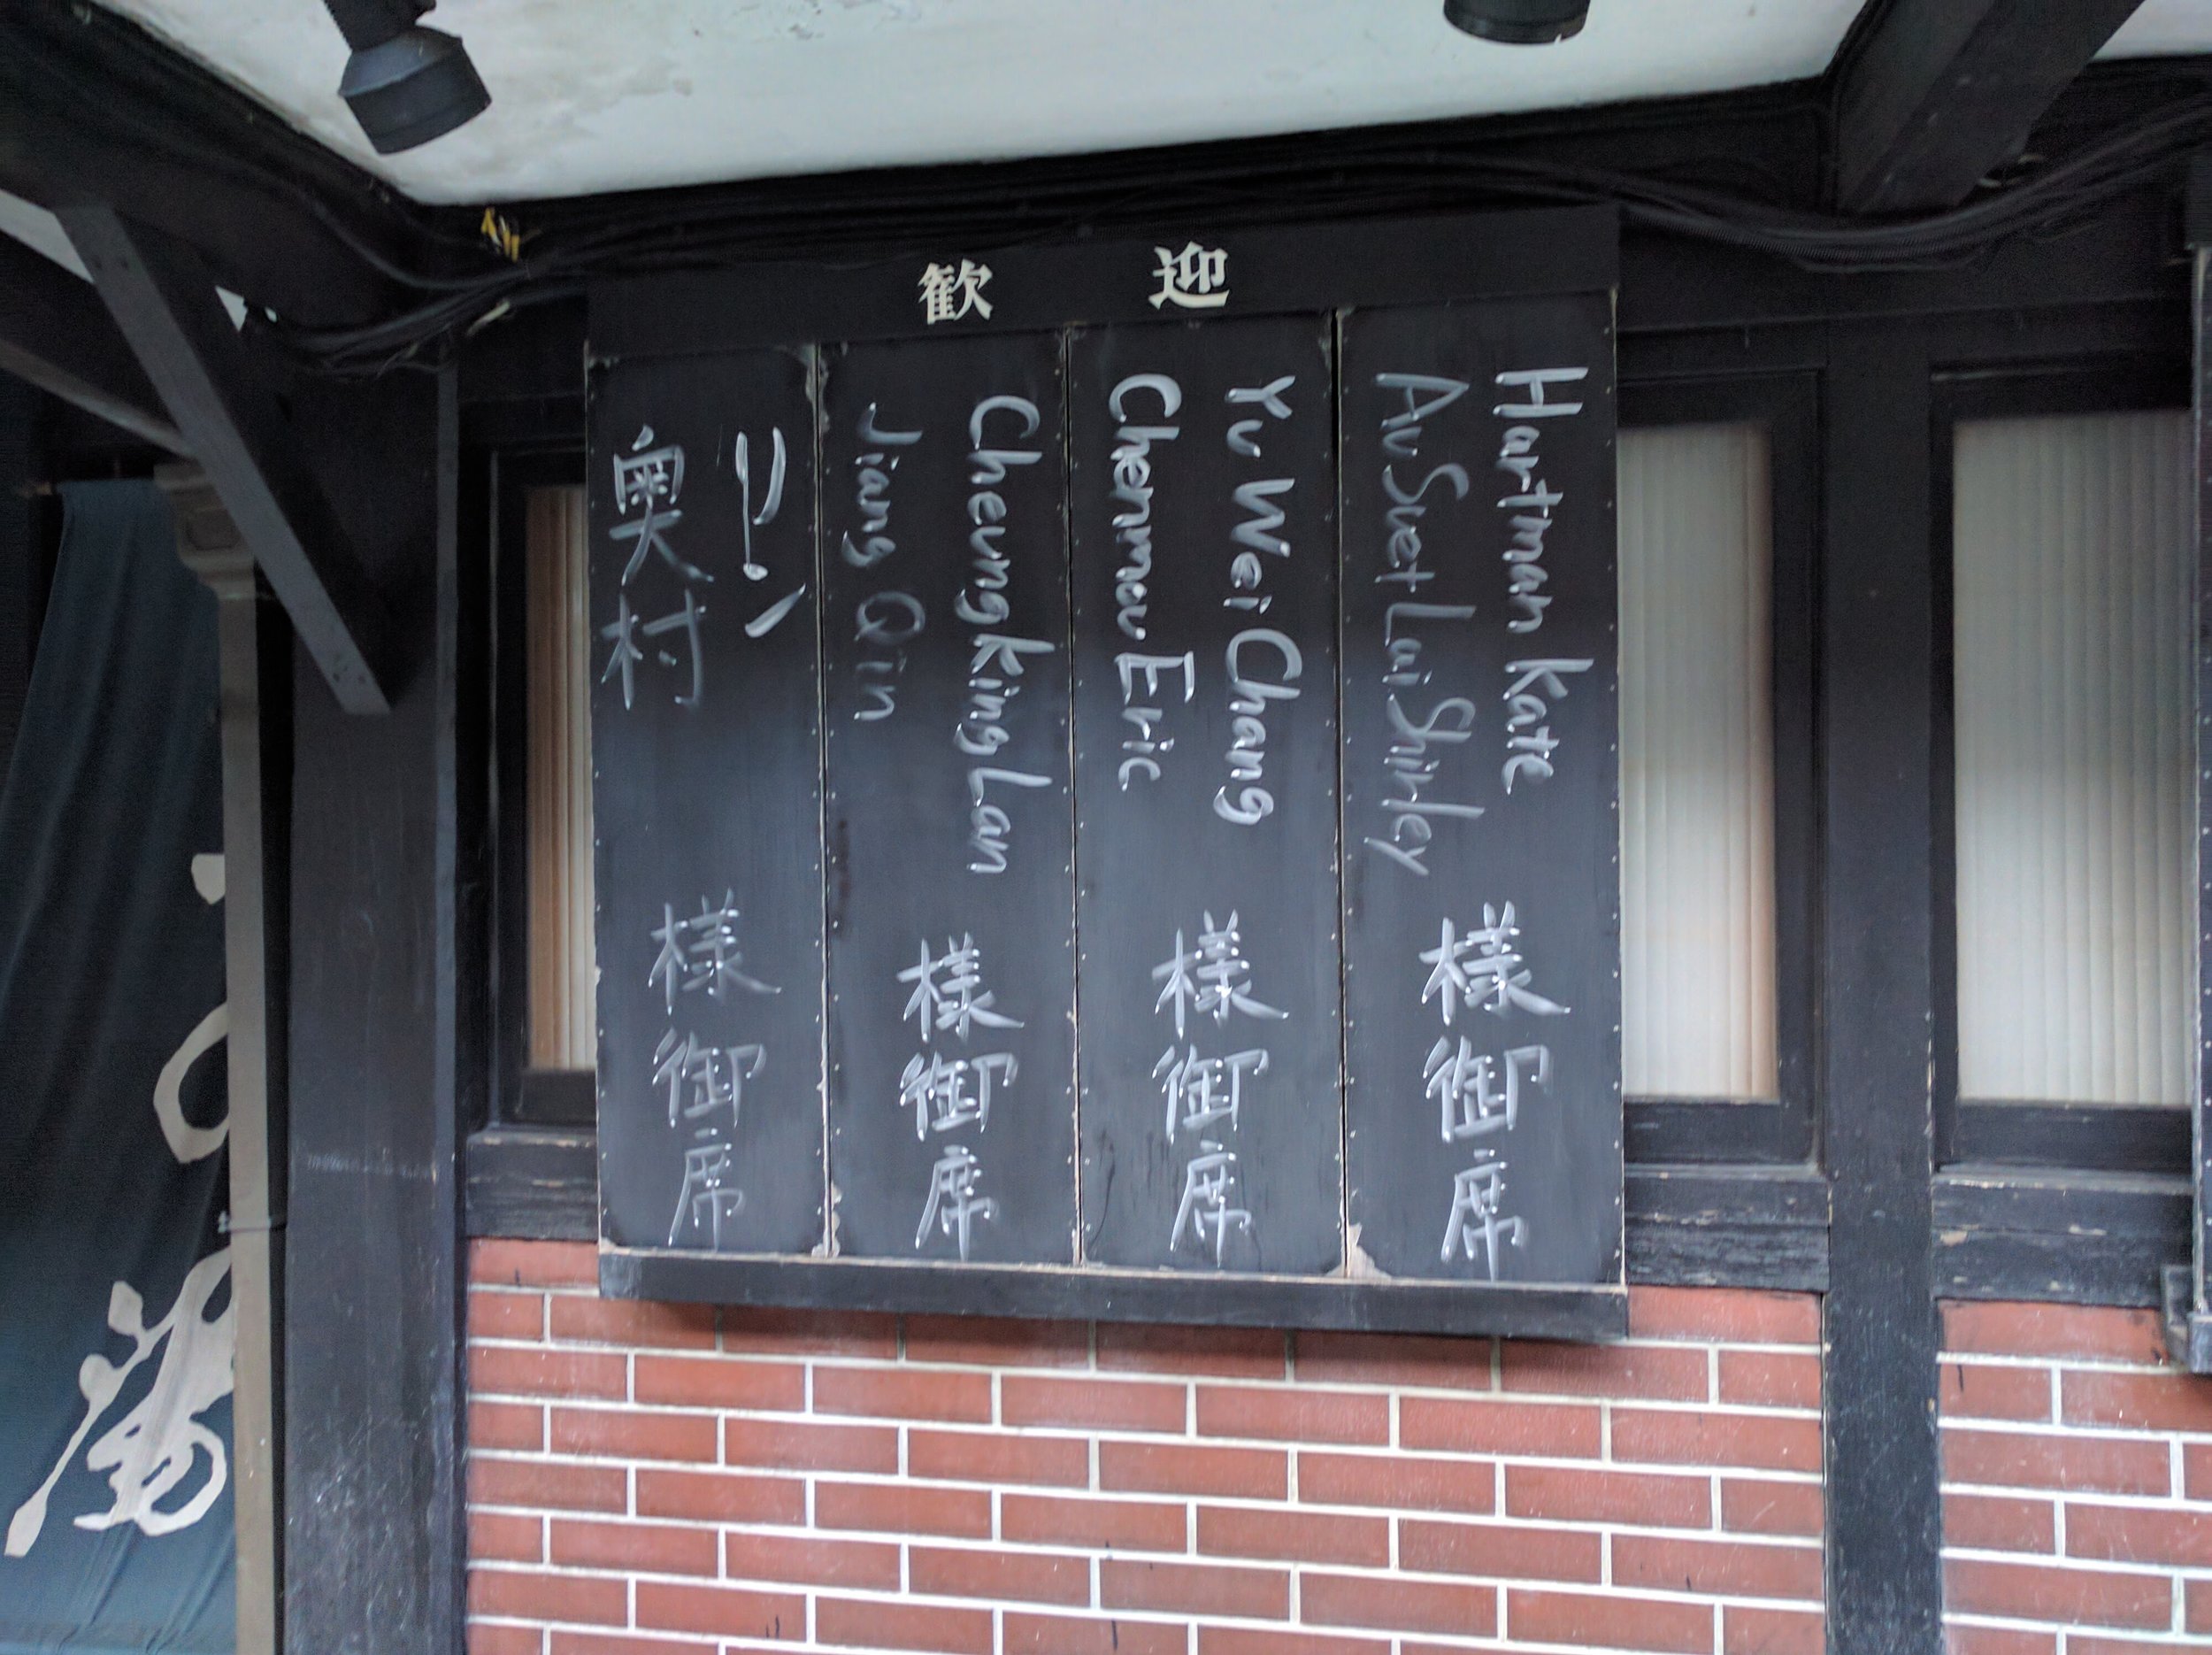 歓迎
Hartman Kate
Au Suet Lai Shirley
様御席
Yu Wei Chang
Chenmou Eric
様御席
Cheung King Lan
Jiang Qin
様御席
リン
奥村
様御席
湯